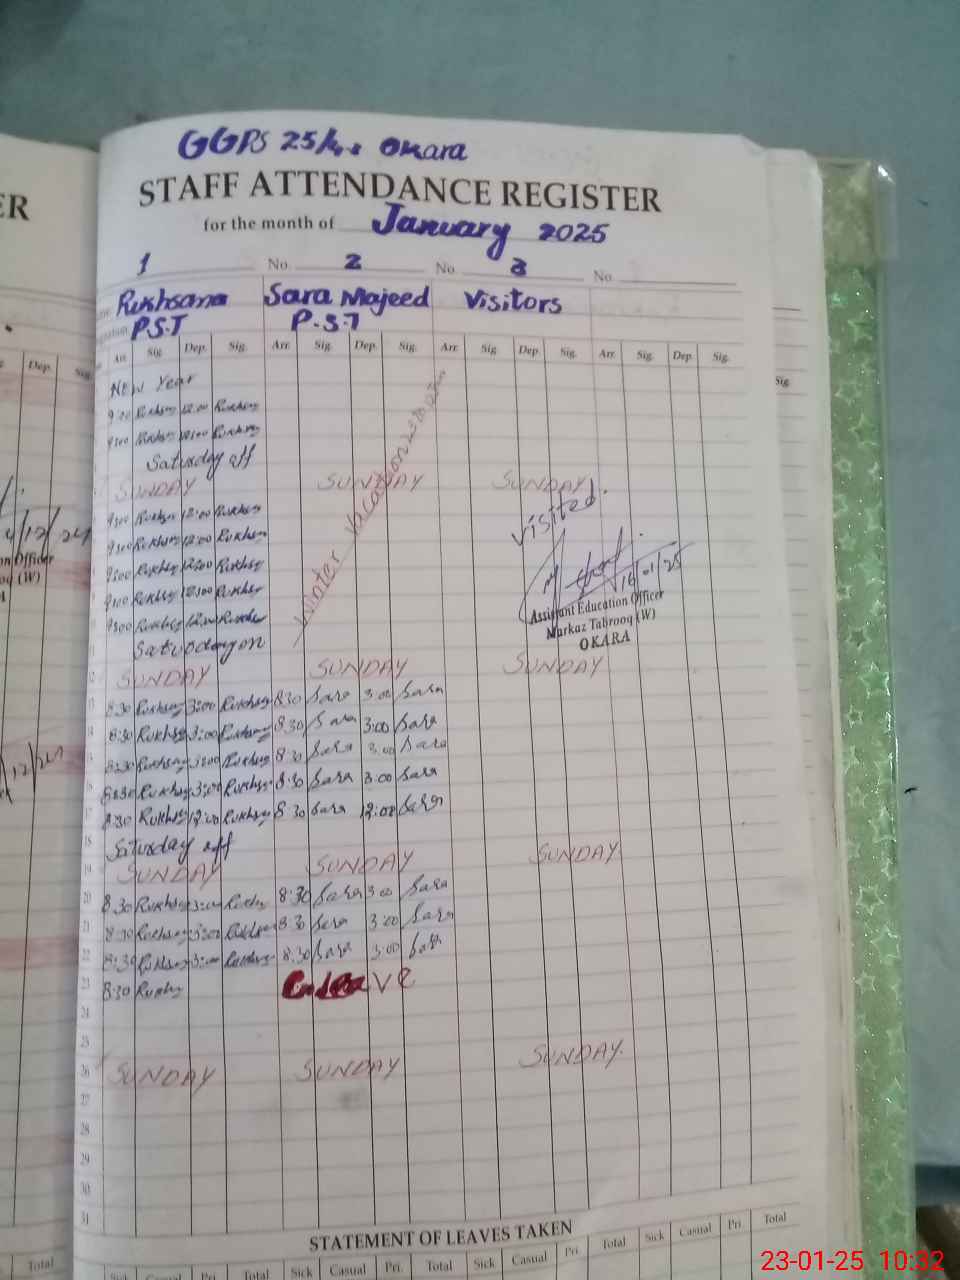 GGPS 25/4.L Okara
STAFF ATTENDANCE REGISTER
for the month of January 2025
1 No. 2 No. 3 No.
Rukhsana Sara Majeed Visitors
P.S.T P.S.T
Arr. Sig. Dep. Sig. Arr. Sig. Dep. Sig. Arr. Sig. Dep. Sig. Arr. Sig. Dep. Sig.
New Year
9:00 Rukhsy 12:00 Rukhsy
9:00 Rukhsy 12:00 Rukhsy
Saturday off
SUNDAY SUNDAY SUNDAY
Winter Vacation
visited.
9:00 Rukhsy 12:00 Rukhsy
9:00 Rukhsy 12:00 Rukhsy
9:00 Rukhsy 12:00 Rukhsy
9:00 Rukhsy 12:00 Rukhsy
16/01/25
9:00 Rukhsy 12:00 Rukhsy
Assistant Education Officer
Markaz Tabrooq (W)
OKARA
11 Saturday on
12 SUNDAY SUNDAY SUNDAY
13 8:30 Rukhsy 3:00 Rukhsy 8:30 Sara 3:00 Sara
14 8:30 Rukhsy 3:00 Rukhsy 8:30 Sara 3:00 Sara
15 8:30 Rukhsy 3:00 Rukhsy 8:30 Sara 3:00 Sara
16 8:30 Rukhsy 3:00 Rukhsy 8:30 Sara 3:00 Sara
17 8:30 Rukhsy 12:00 Rukhsy 8:30 Sara 12:00 Sara
18 Saturday off
19 SUNDAY SUNDAY SUNDAY
20 8:30 Rukhsy 3:00 Rukhsy 8:30 Sara 3:00 Sara
21 8:30 Rukhsy 3:00 Rukhsy 8:30 Sara 3:00 Sara
22 8:30 Rukhsy 3:00 Rukhsy 8:30 Sara 3:00 Sara
23 8:30 Rukhsy C-leave
24
25
26 SUNDAY SUNDAY SUNDAY.
27
28
29
30
31
STATEMENT OF LEAVES TAKEN
Sick Casual Pri. Total Sick Casual Pri. Total Sick Casual Pri. Total Sick Casual Pri. Total
23-01-25 10:32